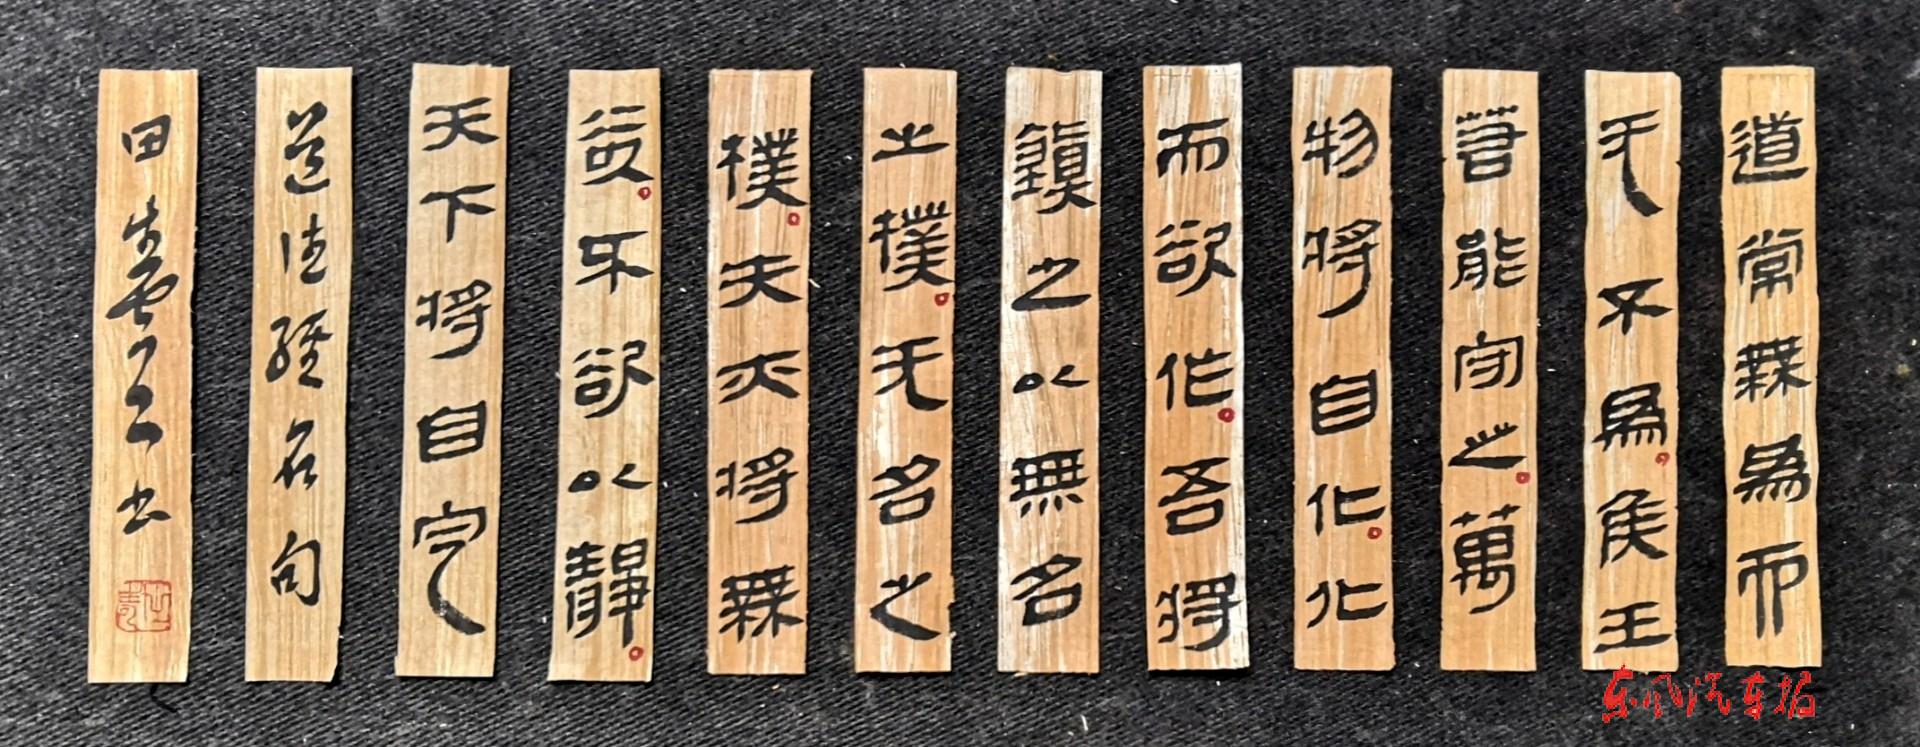 道常無爲而
无不爲。侯王
若能守之。萬
物將自化。化
而欲作。吾將
鎮之以無名
之樸。无名之
樸。夫亦將無
欲。不欲以靜。
天下將自定
道德經名句
田
书
东风汽车报